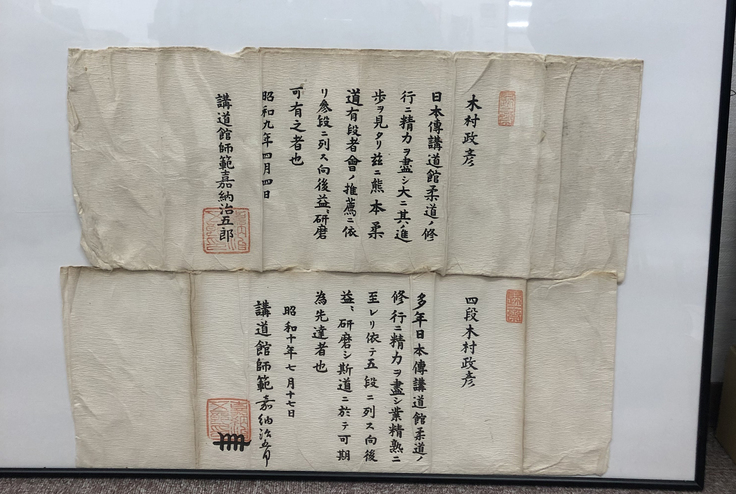 木村政彦
日本傳講道館柔道ノ修
行ニ精力ヲ盡シ大ニ其ノ進
歩ヲ見タリ玆ニ熊本柔
道有段者會ノ推薦ニ依
リ參段ニ列ス向後益〻研磨
可有之者也
昭和九年四月四日
講道館師範嘉納治五郎
四段木村政彦
多年日本傳講道館柔道ノ
修行ニ精力ヲ盡シ業精熟ニ
至レリ依テ五段ニ列ス向後
益〻研磨シ斯道ニ於テ可期
為先達者也
昭和十年七月十七日
講道館師範嘉納治五郎